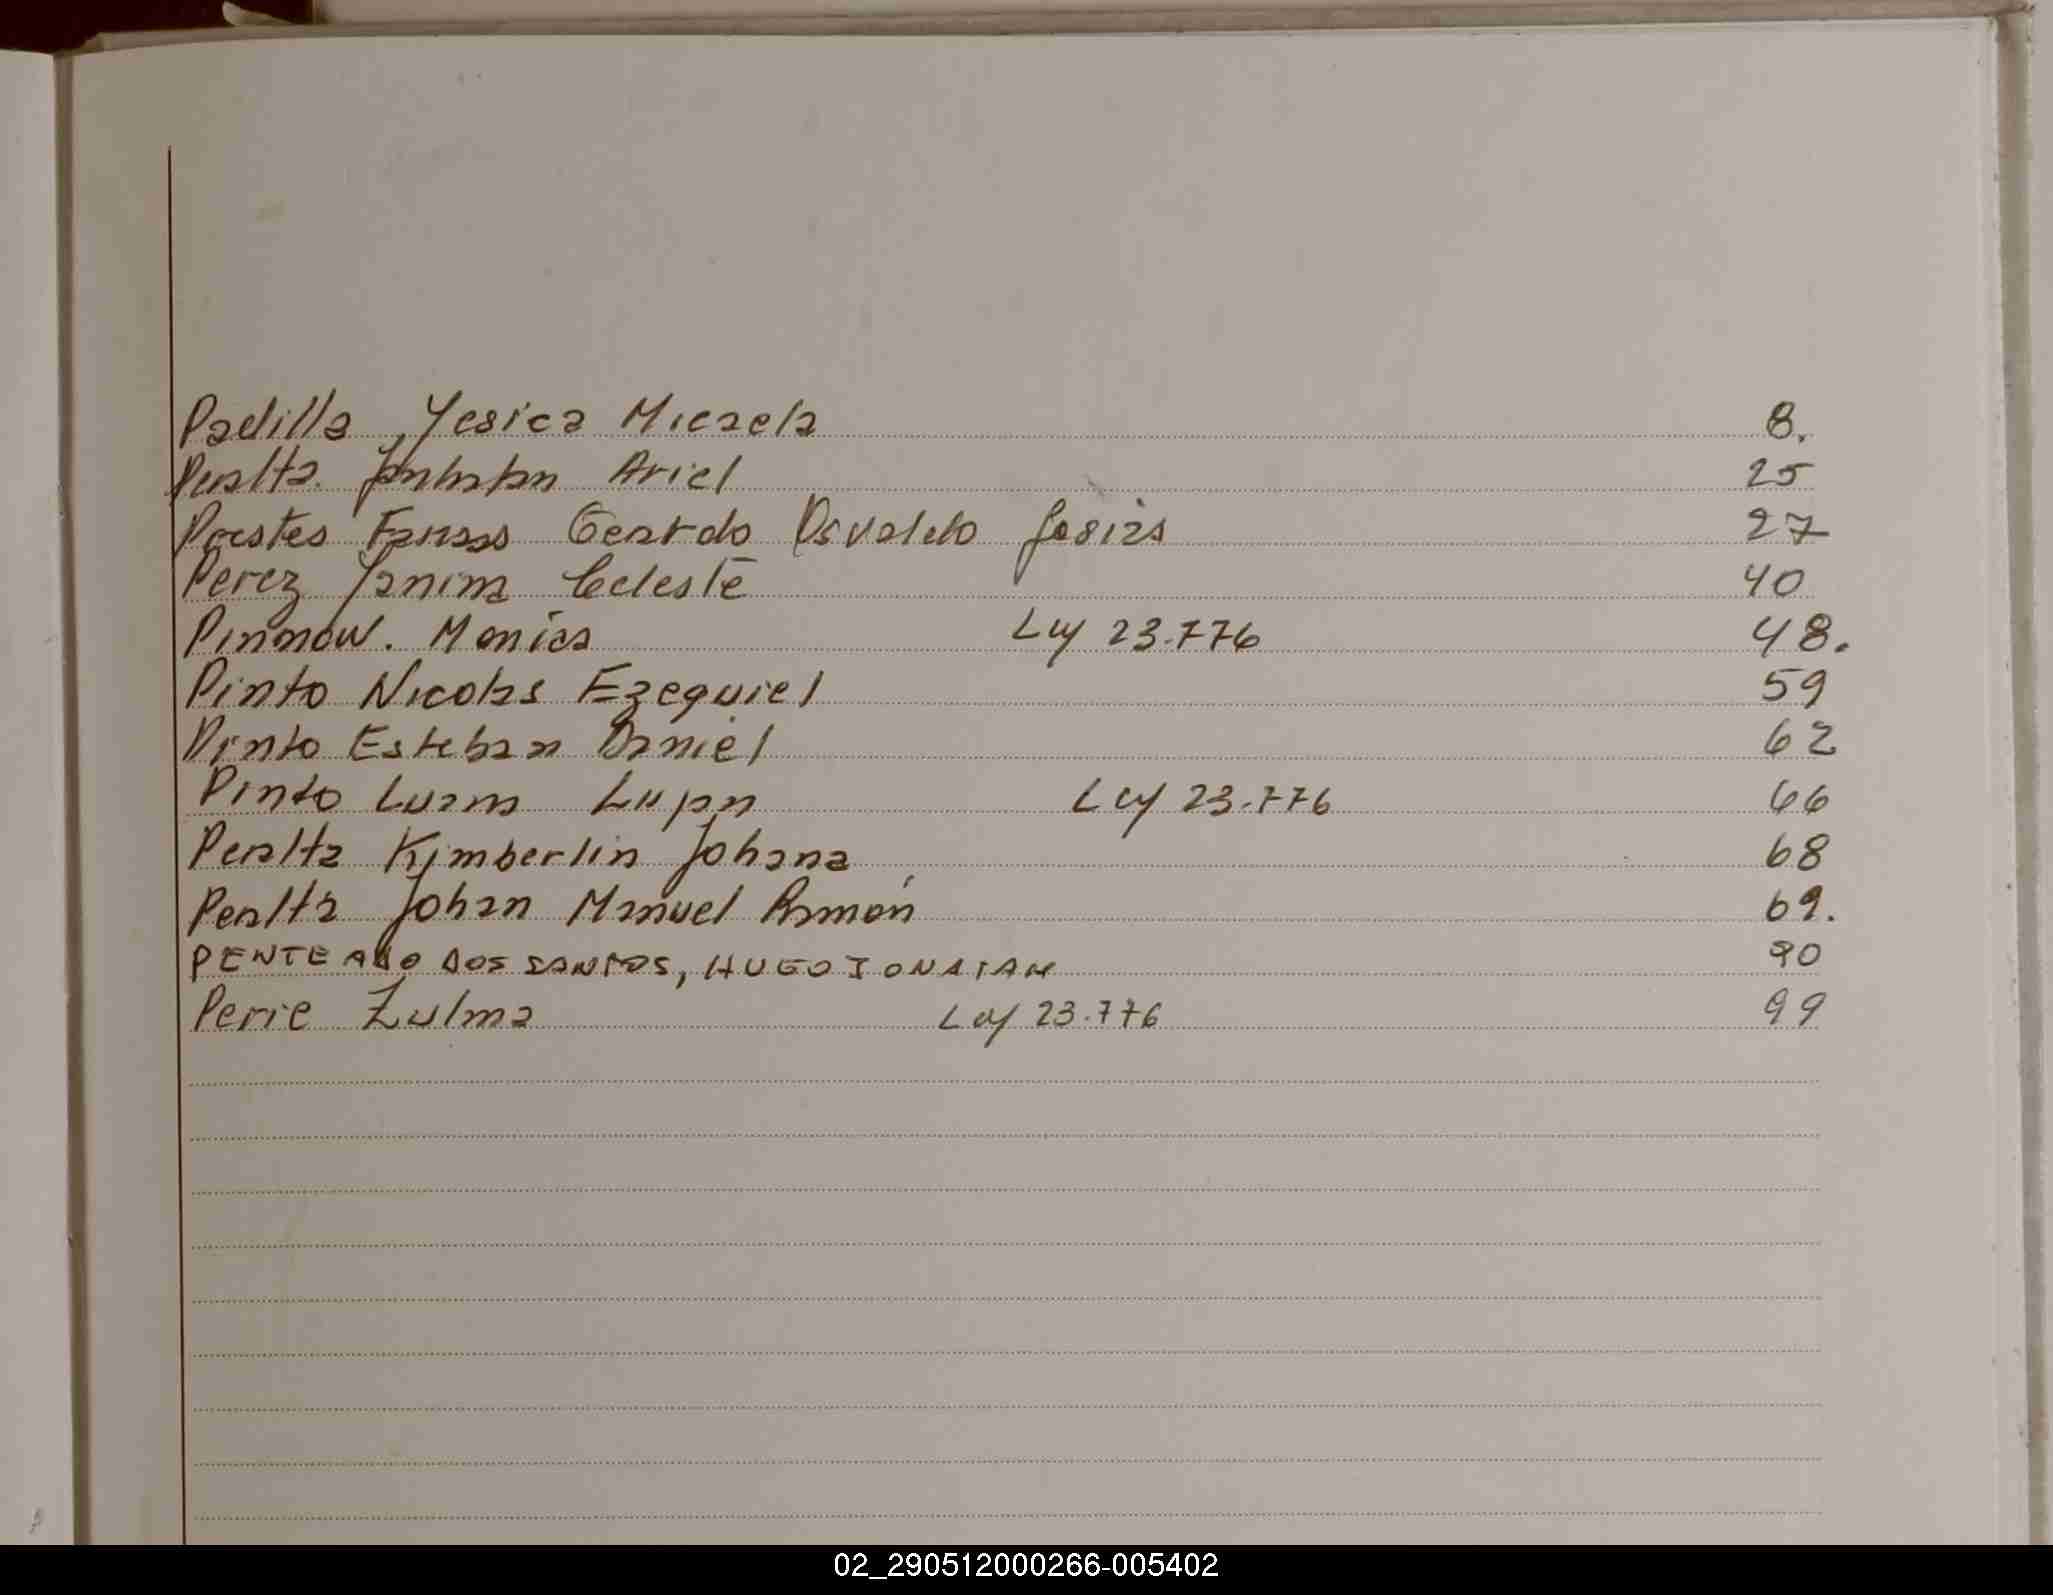 Padilla, Yesica Micaela 8.
Peralta. Jonhatan Ariel 25
Prestes Gerardo Osvaldo Josias 27
Perez Yanina Celeste 40
Pinnow. Monica Ley 23.776 48.
Pinto Nicolas Ezequiel 59
Pinto Esteban Daniel 62
Pinto Luana Ley 23.776 66
Peralta Kimberlin Johana 68
Peralta Johan Manuel Ramón 69.
PENTEADO DOS SANTOS, HUGO JONATAN 90
Perie Zulma Ley 23.776 99
02_290512000266-005402